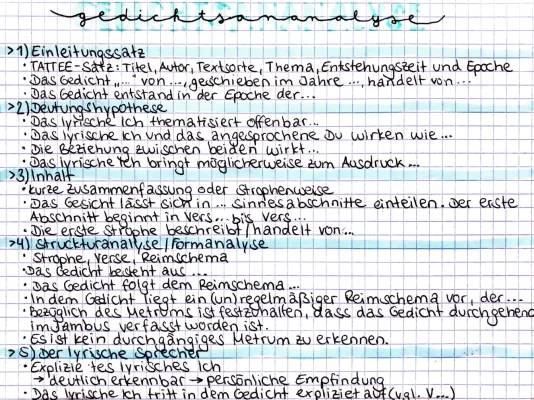 gedichtsananalyse
>1) Einleitungssatz
· TATTEE-Satz: Titel, Autor, Textsorte, Thema, Entstehungszeit und Epoche
· Das Gedicht „..." von ..., geschieben im Jahre ..., handelt von...
· Das Gedicht entstand in der Epoche der...
>2) Deutungshypothese
· Das lyrische Ich thematisiert offenbar...
· Das lyrische Ich und das angesprochene Du wirken wie...
· Die Beziehung zwischen beiden wirkt...
· Das lyrische Ich bringt möglicherweise zum Ausdruck...
>3) Inhalt
· kurze Zusammenfassung oder Strophenweise
· Das Gesicht lässt sich in ... Sinnesabschnitte einteilen. Der erste
Abschnitt beginnt in Vers... bis Vers...
· Die erste Strophe beschreibt/handelt von...
>4) Strukturanalyse/Formanalyse
· Strophe, Verse, Reimschema
· Das Gedicht besteht aus ...
· Das Gedicht folgt dem Reimschema...
· In dem Gedicht liegt ein (un)regelmäßiger Reimschema vor, der...
· Bezüglich des Metrums ist festzuhalten, dass das Gedicht durchgehend
im Jambus verfasst worden ist.
· Es ist kein durchgängiges Metrum zu erkennen.
>5) Der lyrische Sprecher
· Explizietes lyrisches Ich
→ deutlich erkennbar → persönliche Empfindung
· Das lyrische Ich tritt in dem Gedicht expliziet auf (vgl. V...)